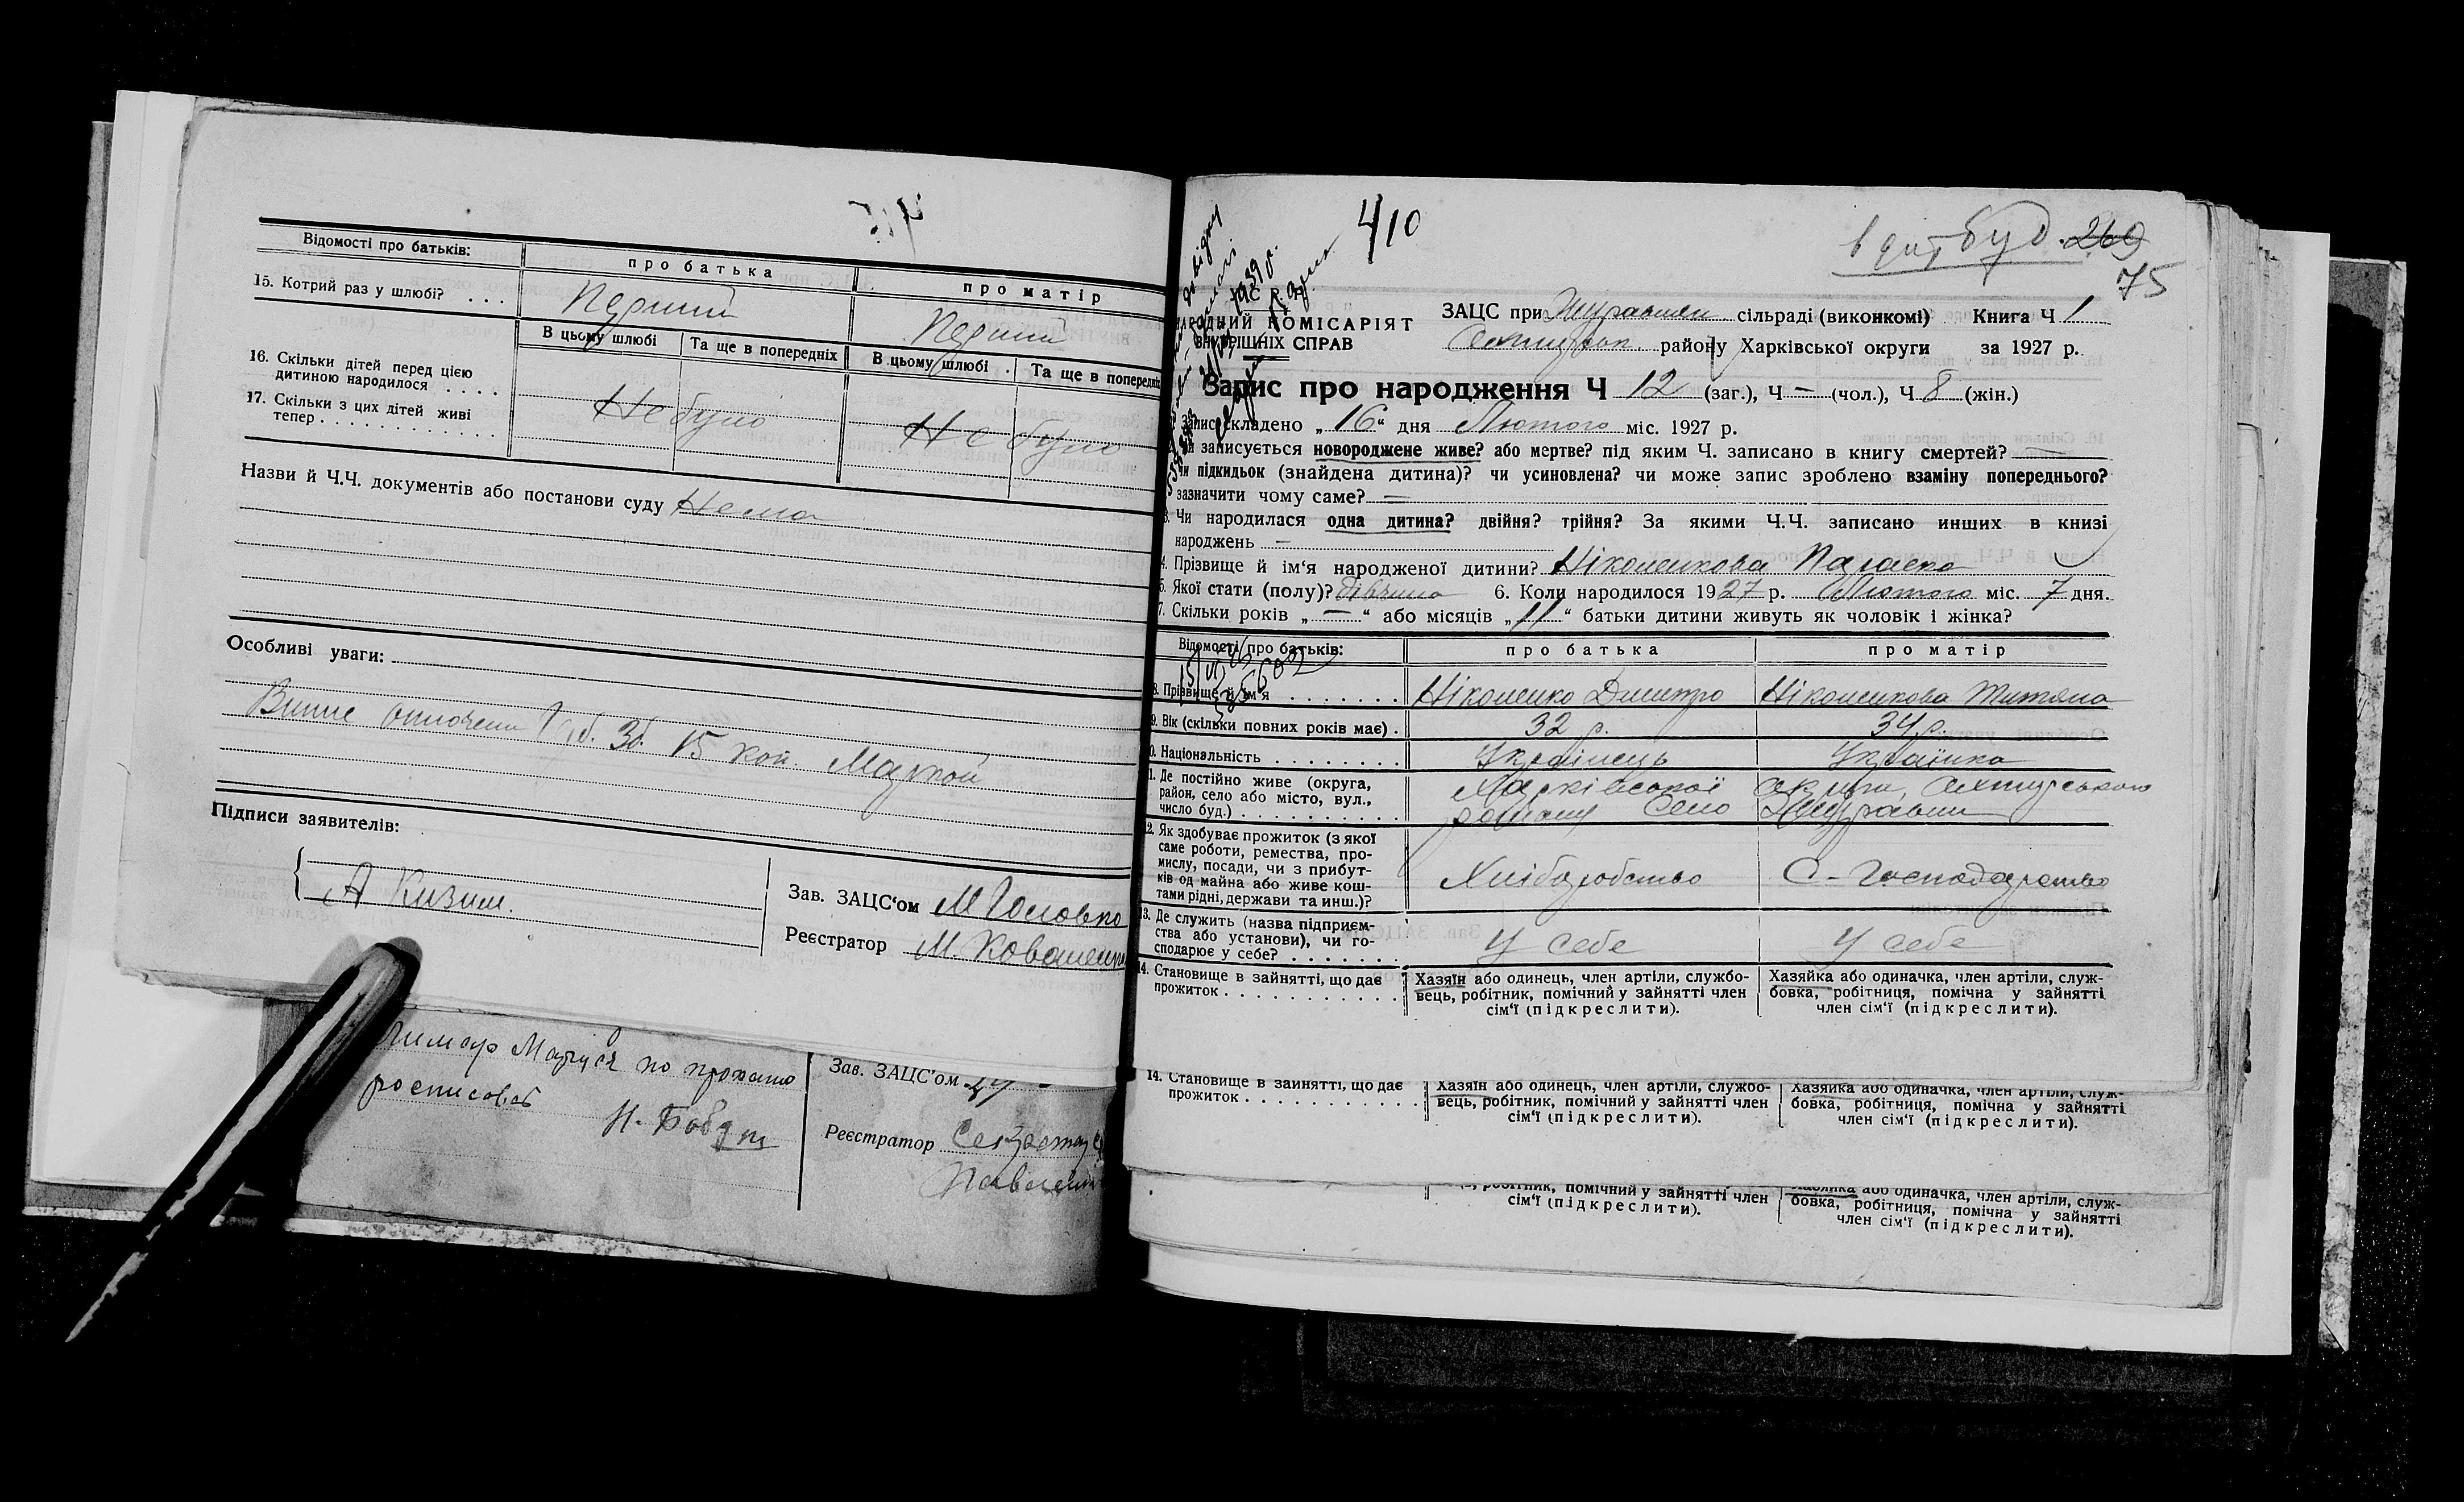 Відомості про батьків: про батька про матір
15. Котрий раз у шлюбі? . . . Перший Перший
В цьому шлюбі Та ще в попередніх В цьому шлюбі Та ще в попередніх
16. Скільки дітей перед цією
дитиною народилося . . . .
17. Скільки з цих дітей живі
тепер . . . . . . . . . . . .
Не було Не було
Назви й Ч.Ч. документів або постанови суду Нема
Особливі уваги:
15 коп. Маркой
Підписи заявителів:
А Кизим.
Зав. ЗАЦС‘ом М Головко
Реєстратор М. Коваленко
Маруся по проханню
росписався
Зав. ЗАЦС’ом
Реєстратор
410
буд. 269
75
НАРОДНИЙ КОМІСАРІЯТ
ВНУТРІШНІХ СПРАВ
ЗАЦС при Журавлян. сільраді (виконкомі) Книга Ч 1
Охтирськ. району Харківської округи за 1927 р.
Запис про народження Ч 12 (заг.), Ч — (чол.), Ч 8 (жін.)
Запис складено „16“ дня Лютого міс. 1927 р.
Чи записується новороджене живе? або мертве? під яким Ч. записано в книгу смертей? —
чи підкидьок (знайдена дитина)? чи усиновлена? чи може запис зроблено взаміну попереднього?
зазначити чому саме? —
3. Чи народилася одна дитина? двійня? трійня? За якими Ч.Ч. записано инших в книзі
народжень —
4. Прізвище й ім‘я народженої дитини? Ніконенкова Параска
5. Якої стати (полу)? дівчина 6. Коли народилося 1927 р. Лютого міс. 7 дня.
7. Скільки років „—“ або місяців „11“ батьки дитини живуть як чоловік і жінка?
Відомості про батьків: про батька про матір
8. Прізвище й ім‘я . . . . . . . Ніконенко Дмитро Ніконенкова Титяна
9. Вік (скільки повних років має) . 32 р. 34 р.
10. Національність . . . . . . . . Українець Українка
11. Де постійно живе (округа, Харківської округи, Охтирського
район, село або місто, вул.,
число буд.) . . . . . . . . . . району Село Журавни
12. Як здобуває прожиток (з якої
саме роботи, ремества, про-
мислу, посади, чи з прибут-
ків од майна або живе кош-
тами рідні, держави та инш.)?
Хліборобство С-Господарство
13. Де служить (назва підприєм-
ства або установи), чи го-
сподарює у себе? . . . . . . .
У себе У себе
14. Становище в зайнятті, що дає
прожиток . . . . . . . . . . . .
Хазяїн або одинець, член артіли, службо-
вець, робітник, помічний у зайнятті член
сім‘ї (підкреслити).
Хазяйка або одиначка, член артіли, служ-
бовка, робітниця, помічна у зайнятті
член сім‘ї (підкреслити).
14. Становище в зайнятті, що дає
прожиток . . . . . . . . . . . .
Хазяїн або одинець, член артіли, службо-
вець, робітник, помічний у зайнятті член
сім‘ї (підкреслити).
Хазяйка або одиначка, член артіли, служ-
бовка, робітниця, помічна у зайнятті
член сім‘ї (підкреслити).
робітник, помічний у зайнятті член
сім‘ї (підкреслити).
Хазяйка або одиначка, член артіли, служ-
бовка, робітниця, помічна у зайнятті
член сім‘ї (підкреслити).